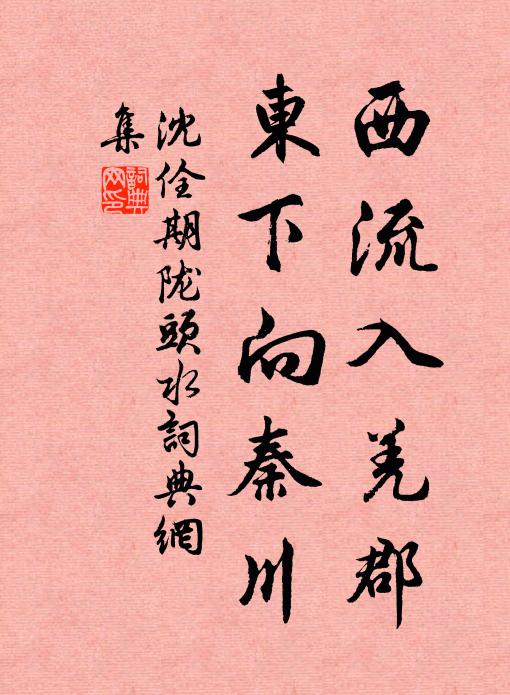 西流入羌郡
東下向秦川
沈佺期陇頭水詞典網
集
詞典
网印